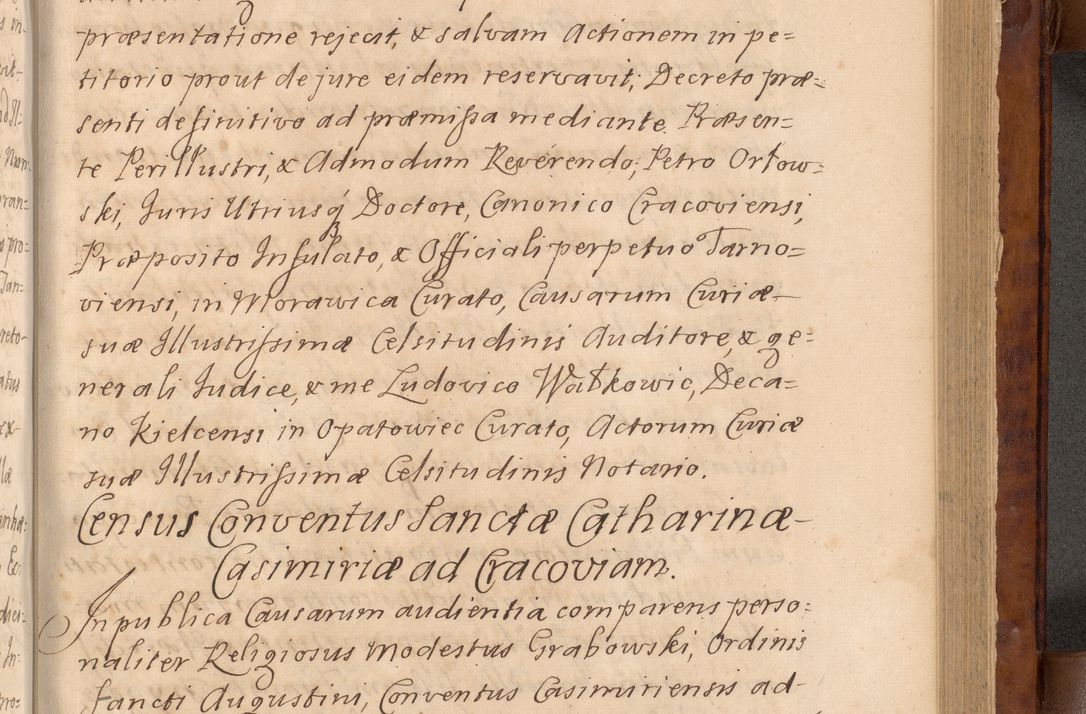 præsentatione rejecit, & salvam Actionem in pe=
titorio prout de jure eidem reservavit; Decreto præ=
senti definitivo ad præmissa mediante. Præsen=
te Perillustri, & Admodum Reverendo, Petro Orłow=
ski, Juris Utriusq́ Doctore, Canonico Cracoviensi,
Præposito Infulato, & Officiali perpetuo Tarno=
viensi, in Morawica Curato, Causarum Curiæ
suæ Illustrissimæ Celsitudinis Auditore, & ge=
nerali Judice, & me Ludovico Watkowic, Deca=
no Kielcensi in Opatowiec Curato, Actorum Curiæ
suæ Illustrissimæ Celsitudinis Notario.
Census Conventus Sanctæ Catharinæ
Casimiriæ ad Cracoviam.
In publica Causarum audientia comparens perso=
naliter Religiosus Modestus Grabowski, Ordinis
Sancti Augustini, Conventus Casimiriensis ad